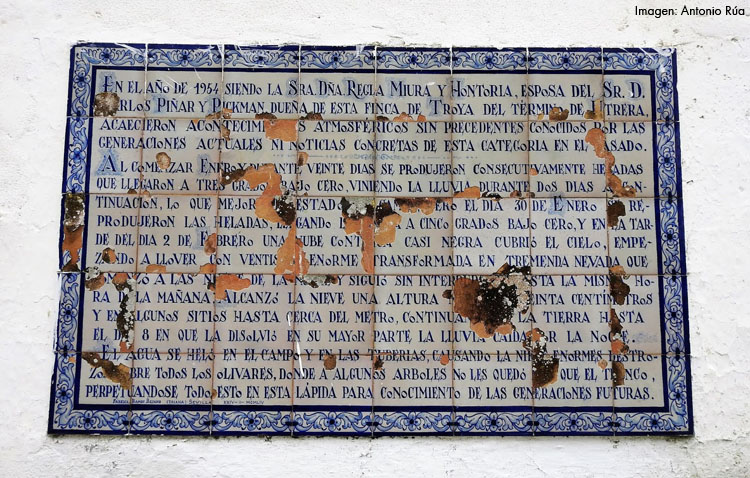 Imagen: Antonio Rúa
EN EL AÑO DE 1954 SIENDO LA SRA. DÑA REGLA MIURA Y HONTORIA, ESPOSA DEL SR. D.
CARLOS PIÑAR Y PICKMAN DUEÑA DE ESTA FINCA DE TROYA DEL TÉRMINO DE UTRERA,
ACAECIERON ACONTECIMIENTOS ATMOSFÉRICOS SIN PRECEDENTES CONOCIDOS POR LAS
GENERACIONES ACTUALES NI NOTICIAS CONCRETAS DE ESTA CATEGORIA EN EL PASADO.
AL COMENZAR ENERO Y DURANTE VEINTE DIAS SE PRODUJERON CONSECUTIVAMENTE HELADAS
QUE LLEGARON A TRES GRADOS BAJO CERO, VINIENDO LA LLUVIA DURANTE DOS DIAS A CON-
TINUACIÓN, LO QUE MEJORÓ ESTADO PERO EL DIA 30 DE ENERO SE RE-
PRODUJERON LAS HELADAS, LLEGANDO A CINCO GRADOS BAJO CERO, Y EN LA TAR-
DE DEL DIA 2 DE FEBRERO UNA NUBE CASI NEGRA CUBRIÓ EL CIELO, EMPE-
ZANDO A LLOVER CON VENTISCA ENORME TRANSFORMADA EN TREMENDA NEVADA QUE
A LAS DE LA SIGUIÓ SIN INTERRUPCIÓN HASTA LA MISMA HO-
RA DE LA MAÑANA. ALCANZÓ LA NIEVE UNA ALTURA CENTIMETROS
Y EN ALGUNOS SITIOS HASTA CERCA DEL METRO, CONTINUANDO TIERRA HASTA
EL 8 EN QUE LA DISOLVIÓ EN SU MAYOR PARTE LA LLUVIA CAIDA POR LA NOCHE.
EL AGUA SE HELÓ EN EL CAMPO Y EN LAS TUBERIAS, CAUSANDO LA NIEVE ENORMES DESTRO-
ZOS SOBRE TODOS LOS OLIVARES, DONDE A ALGUNOS ARBOLES NO LES QUEDÓ QUE EL TRONCO,
PERPETUANDOSE TODO ESTO EN ESTA LÁPIDA PARA CONOCIMIENTO DE LAS GENERACIONES FUTURAS.
(TRIANA) SEVILLA